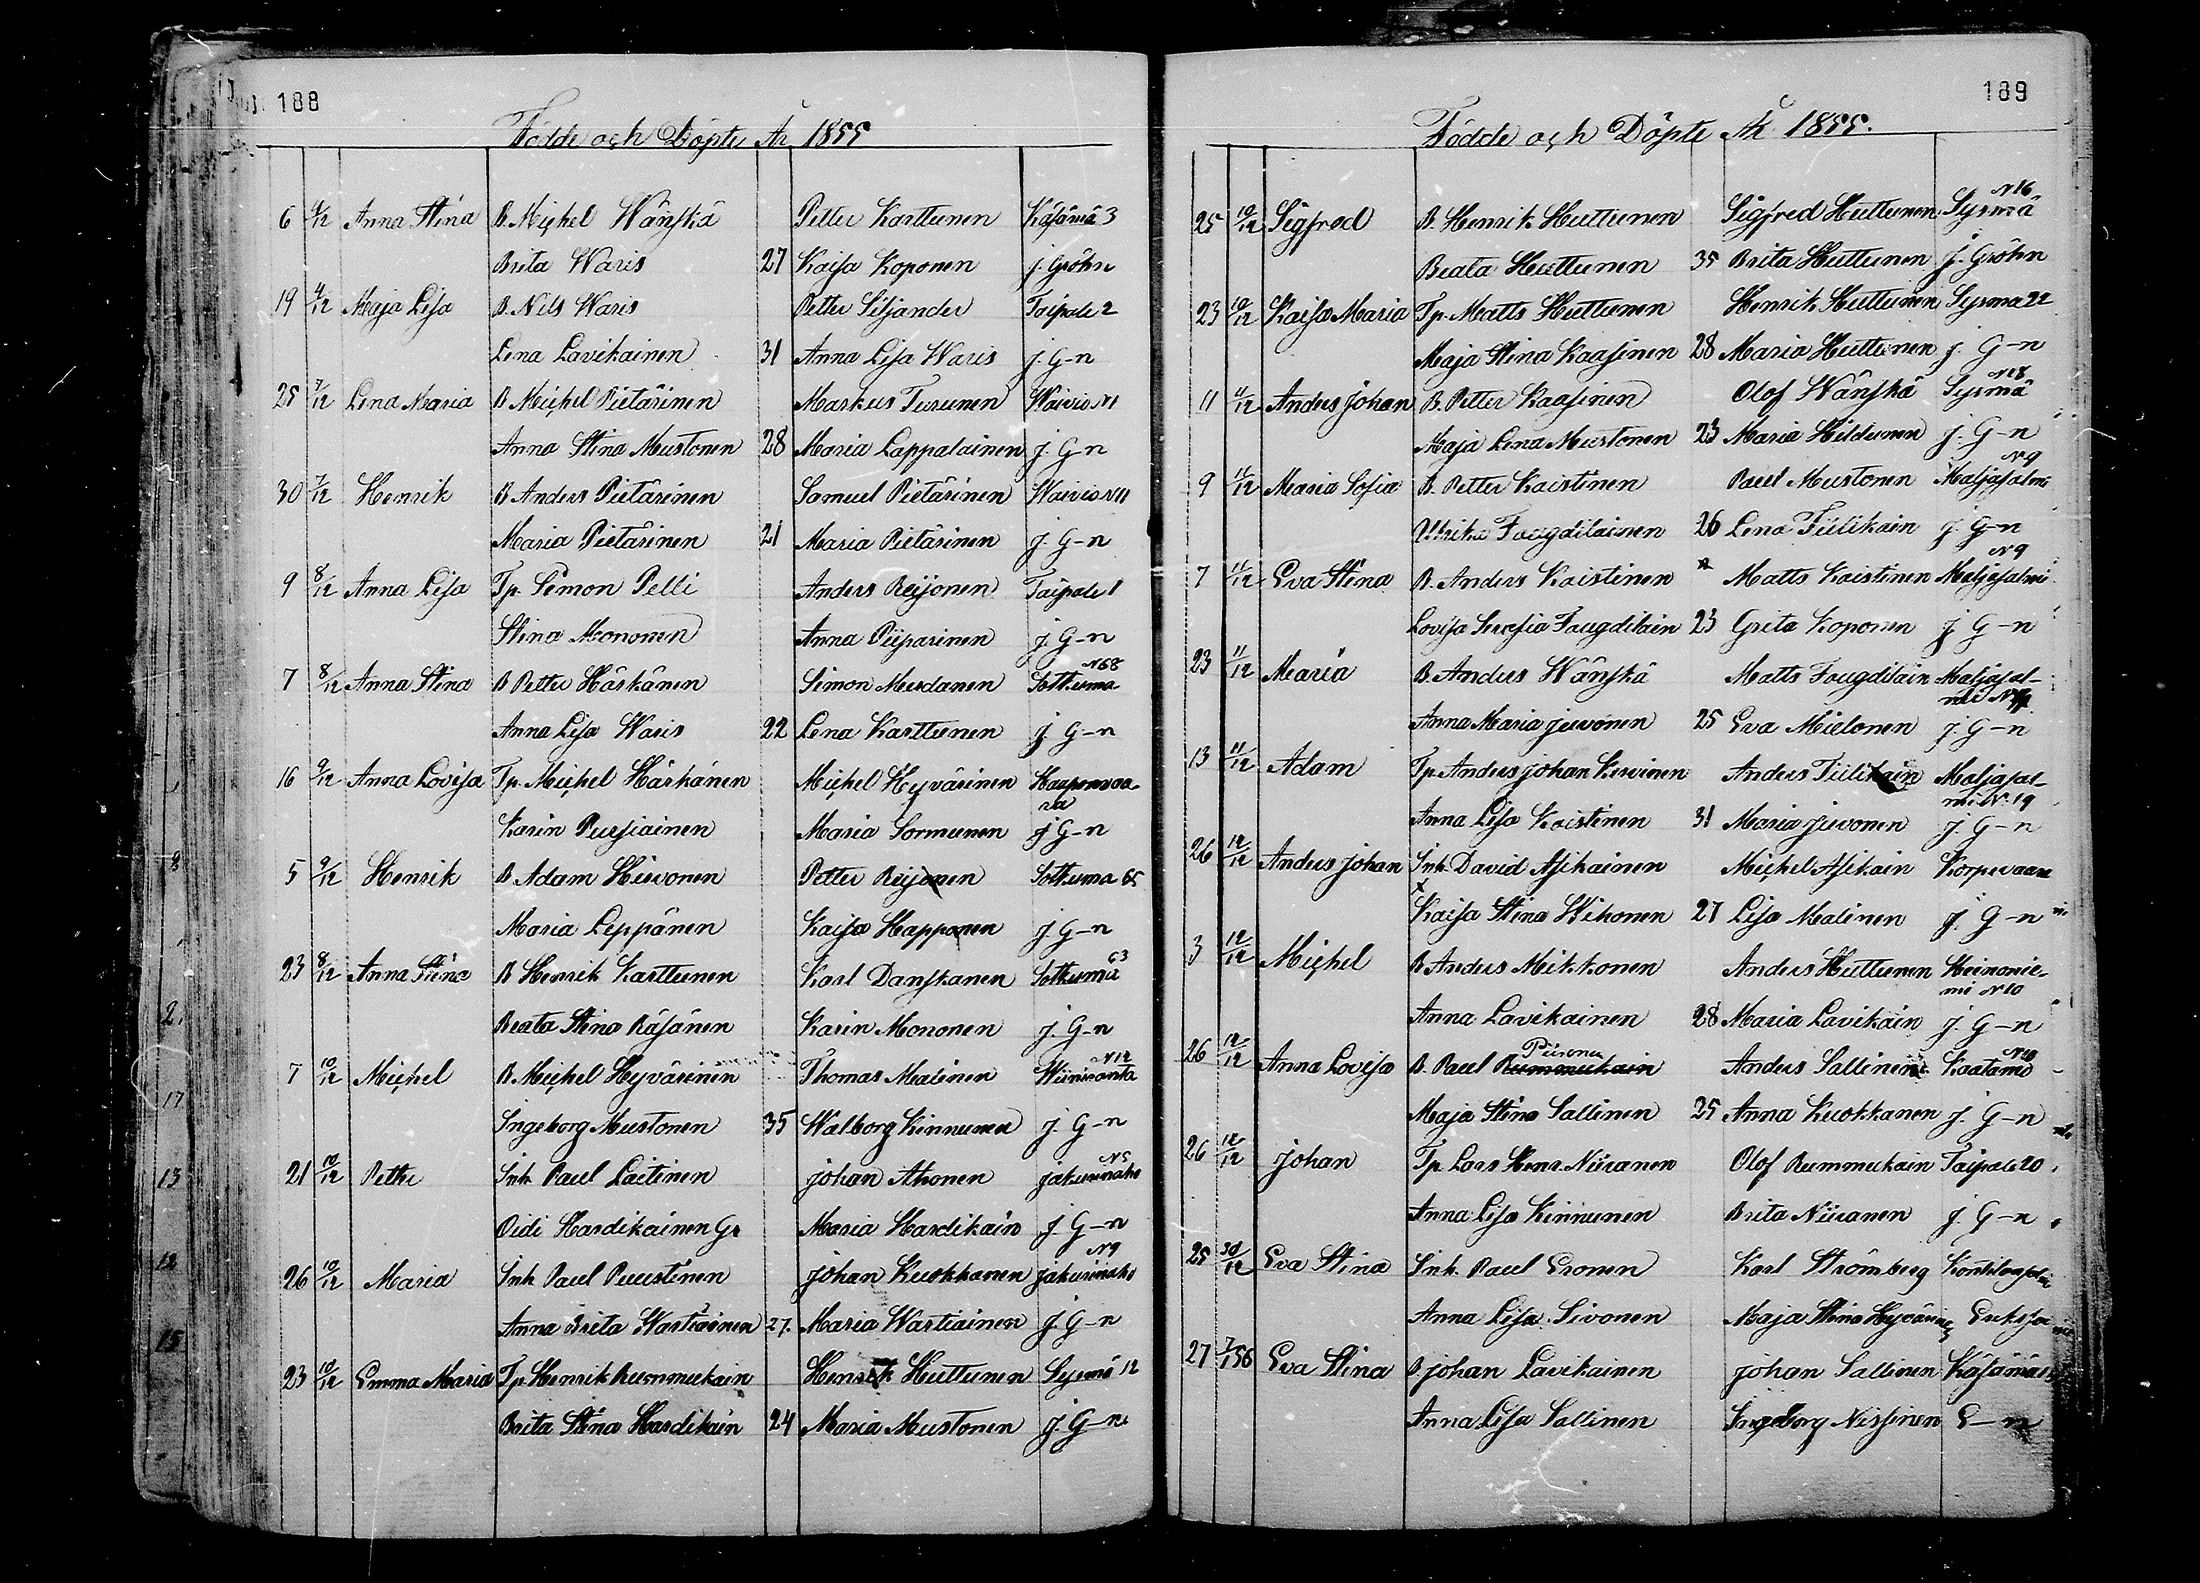 188
Födde och Döpte År 1855
6 4/12 Anna Stina B. Michel Wänskä Petter Karttunen Käsämä 3
Brita Waris 27 Kaisa Koponen j. Gröhn
19 4/12 Maja Lisa B. Nils Waris Petter Siljander Taipale 2
Lena Lavikainen 31 Anna Lisa Waris j. G-n
25 7/12 Lena Maria B Michel Pietärinen Markus Turunen Waivio N1
Anna Stina Mustonen 28 Maria Lappalainen j. G-n
30 7/12 Henrik B Anders Pietärinen Samuel Pietärinen Waivio N11
Maria Pietärinen 21 Maria Pietärinen j. G-n
9 8/12 Anna Lisa Tp. Simon Pelli Anders Reijonen Taipale 1
Stina Mononen Anna Piiparinen j. G-n
N68
7 8/12 Anna Stina B Petter Häskänen Simon Mustanen Sotkuma
Anna Lisa Waris 22 Lena Karttunen j. G-n
16 9/12 Anna Lovisa Tp. Michel Härkänen Michel Hyvärinen Haaponvaa-
ra
Karin Pursiainen Maria Sormunen j G-n
5 9/12 Henrik B Adam Hirvonen Petter Reijonen Sotkuma 65
Maria Leppänen Kaisa Happonen j. G-n
63
23 8/12 Anna Stina B Henrik Karttunen Karl Danskanen Sotkuma
Beata Stina Räsänen Karin Mononen j. G-n
N12
7 10/12 Michel B. Michel Hyvärinen Thomas Malinen Wiinranta
Ingeborg Mustonen 35 Walborg Kinnunen j. G-n
N5
21 10/12 Petter Inh. Paul Laitinen Johan Ahonen Jakurinaho
Didi Hardikainen Gr Maria Hardikain j. G-n
N9
26 10/12 Maria Inh. Paul Puustinen Johan Kuokkanen Jakurinaho
Anna Brita Wartiainen 27. Maria Wartiainen j. G-n
23 10/12 Emma Maria Tp. Henrik Rummukain Henrik Huttunen Sysmä 12
Brita Stina Hardikain 24 Maria Mustonen j. G-n
189
Födde och Döpte År 1855.
N16
25 10/12 Sigfred B. Henrik Huttunen Sigfred Huttunen Sysmä
Beata Huttunen 35 Brita Huttunen j. Gröhn
23 10/12 Kaisa Maria Tp. Matts Huttunen Henrik Huttunen Sysmä 22
Maja Stina Kaasinen 28 Maria Huttunen j. G-n
N8
11 11/12 Anders Johan B. Petter Kaasinen Olof Wänskä Sysmä
Maja Lena Mustonen 23 Maria Hildunen j. G-n
N9
9 11/12 Maria Sofia B. Petter Kaistinen Paul Mustonen Maljasalmi
Ulrika Fougdilainen 26 Lena Tiilikain j. G-n
N9
7 11/12 Eva Stina B. Anders Kaistinen Matts Kaistinen Maljasalmi
Lovisa Serafia Fougdilain 23 Greta Koponen j G-n
23 11/12 Maria B. Anders Wänskä Matts Fougdilain Maljasal-
mi
Anna Maria Juvonen 25 Eva Mielonen j. G-n
13 11/12 Adam Tp. Anders Johan Kervinen Anders Tiilikain Maljasal-
mi N. 19
Anna Lisa Kaistinen 31 Maria Juvonen j. G-n
26 12/12 Anders Johan Inh. David Asikainen Michel Asikain Korpivaara
Kaisa Stina Wihonen 27 Lisa Malinen j. G-n
3 12/12 Michel B Anders Mikkonen Anders Huttunen Heinonie-
mi N10
Anna Lavikainen 28 Maria Lavikain j. G-n
Piironen N10
26 12/12 Anna Lovisa B. Paul Rummukain Anders Sallinen Kaatamo
Maja Stina Sallinen 25 Anna Kuokkanen j. G-n
26 12/12 Johan Tp. Lars Henr. Niiranen Olof Rummukain Taipale 20
Anna Lisa Kinnunen Brita Niiranen j. G-n
25 30/12 Eva Stina Inh. Paul Eronen Karl Strömberg
Anna Lisa Sivonen Maja Stina
27 7/1 56 Eva Stina B. Johan Lavikainen Johan Sallinen Käsämä
Anna Lisa Sallinen Ingeborg Nissinen E-n